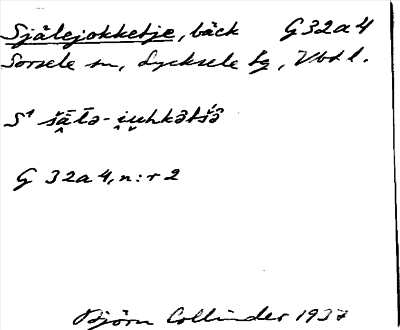 Själejokketje, bäck G 32 a 4
Sorsele sn, Lycksele lg, Vbtl.
G 32 a 4, n:r 2
Björn Collinder 1937